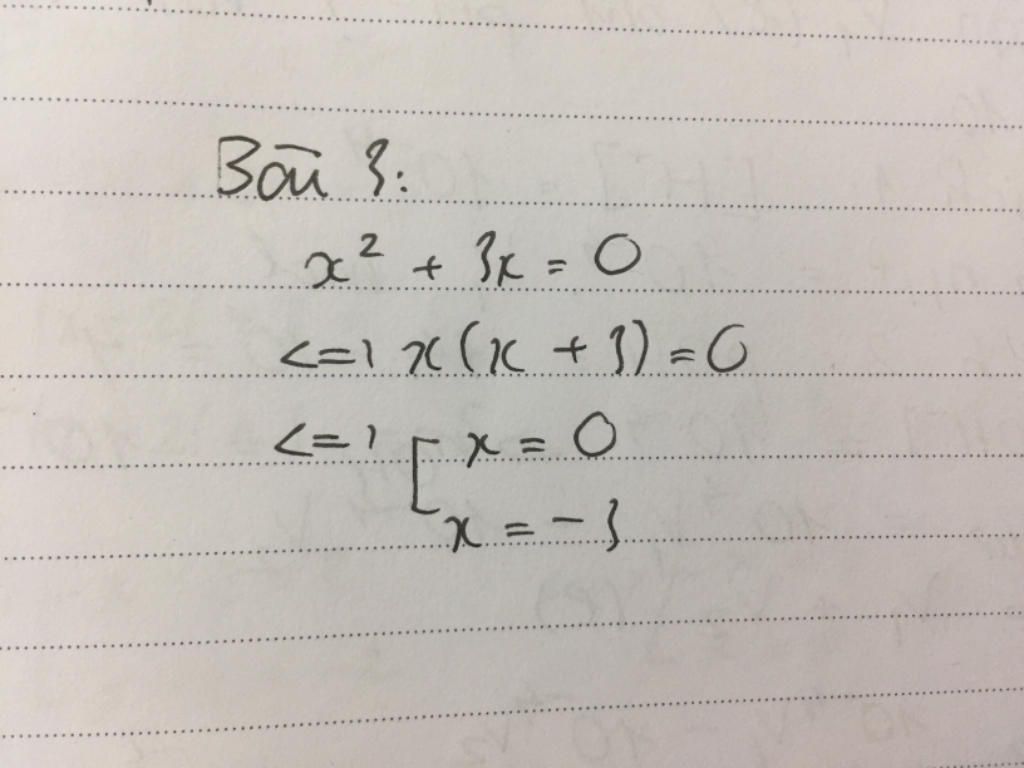 Bài 3:
x² + 3x = 0
<=> x(x + 3) = 0
<=> [ x = 0
x = -3